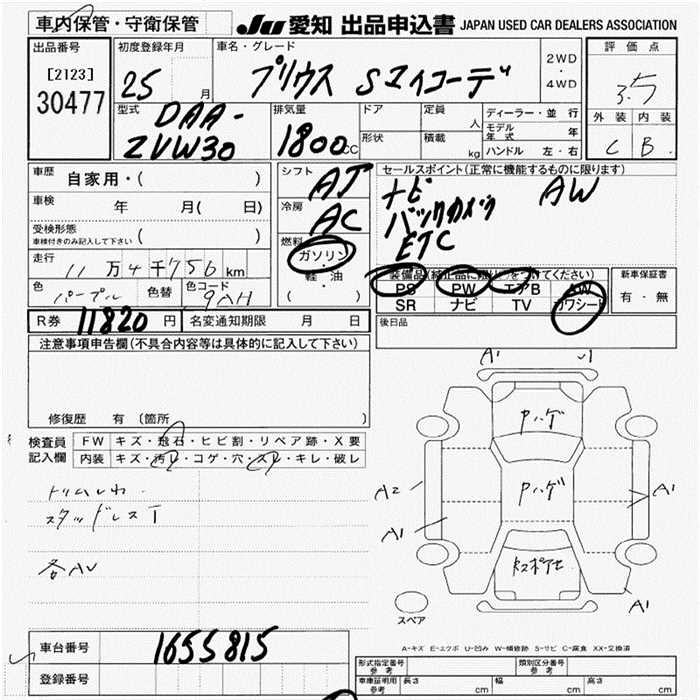 車内保管・守衛保管
JU 愛知 出品申込書 JAPAN USED CAR DEALERS ASSOCIATION
出品番号
[2123]
30477
初度登録年月
25 月
車名・グレード
プリウス Sマイコーデ
2WD
・
4WD
評価点
3.5
外装 内装
C B
型式
DAA-
ZVW30
排気量
1800 CC
ドア
形状
定員 人
積載 kg
ディーラー・並行
モデル年式 年
ハンドル 左・右
車歴
自家用・( )
車検 年 月( 日)
受検形態
車検付きのみ記入して下さい ( )
走行
11万4千756km
色 パープル 色替 色コード 9AH
シフト
AT
冷房
AC
燃料
ガソリン
軽・油
( )
セールスポイント(正常に機能するものに限ります)
ナビ AW
バックカメラ
ETC
装備品(純正品に限り)をつけてください)
PS PW エアB AW
SR ナビ TV カワシート
新車保証書
有・無
R券 11820円 名変通知期限 月 日
後日品
注意事項申告欄(不具合内容等は具体的に記入して下さい)
修復歴 有 〔箇所 〕
検査員
記入欄
FW キズ・飛石・ヒビ割・リペア跡・X要
内装 キズ・汚レ・コゲ・穴・スレ・キレ・破レ
スタッドレスT
各AU
A1
Pハゲ
Pハゲ
A2
A1
A1
A1
スペア
A-キズ E-エクボ U-凹み W-補修跡 S-サビ C-腐食 XX-交換済
車台番号 1655815
登録番号
形式指定番号
参考
類別区分番号
参考
車庫証明用
参考
長さ cm 幅 cm 高さ cm